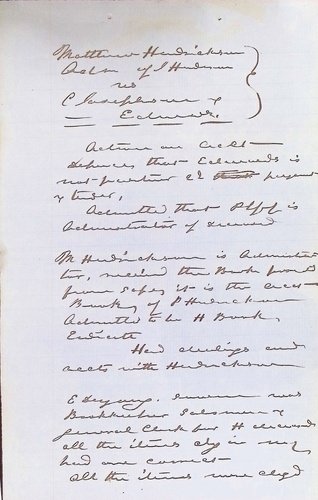 Matthew Hendrickson
Admr of J Hendrickson
vs
C Josephson &
Edwards.
Action on acct
Defences that Edwards is
not partner 2d payment
& tender,
Admitted that Plff is
Administrator of deceased
M Hendrickson is Administra
tor, received the Book from
from is the acct
Book of P Hendrickson
Admitted to be H Book
Evidence
Had dealings and
accts with Hendrickson
E sworn was
Bookkeeper Salesman &
general Clerk for H deceased
all the items in my
hand are correct
all the items were